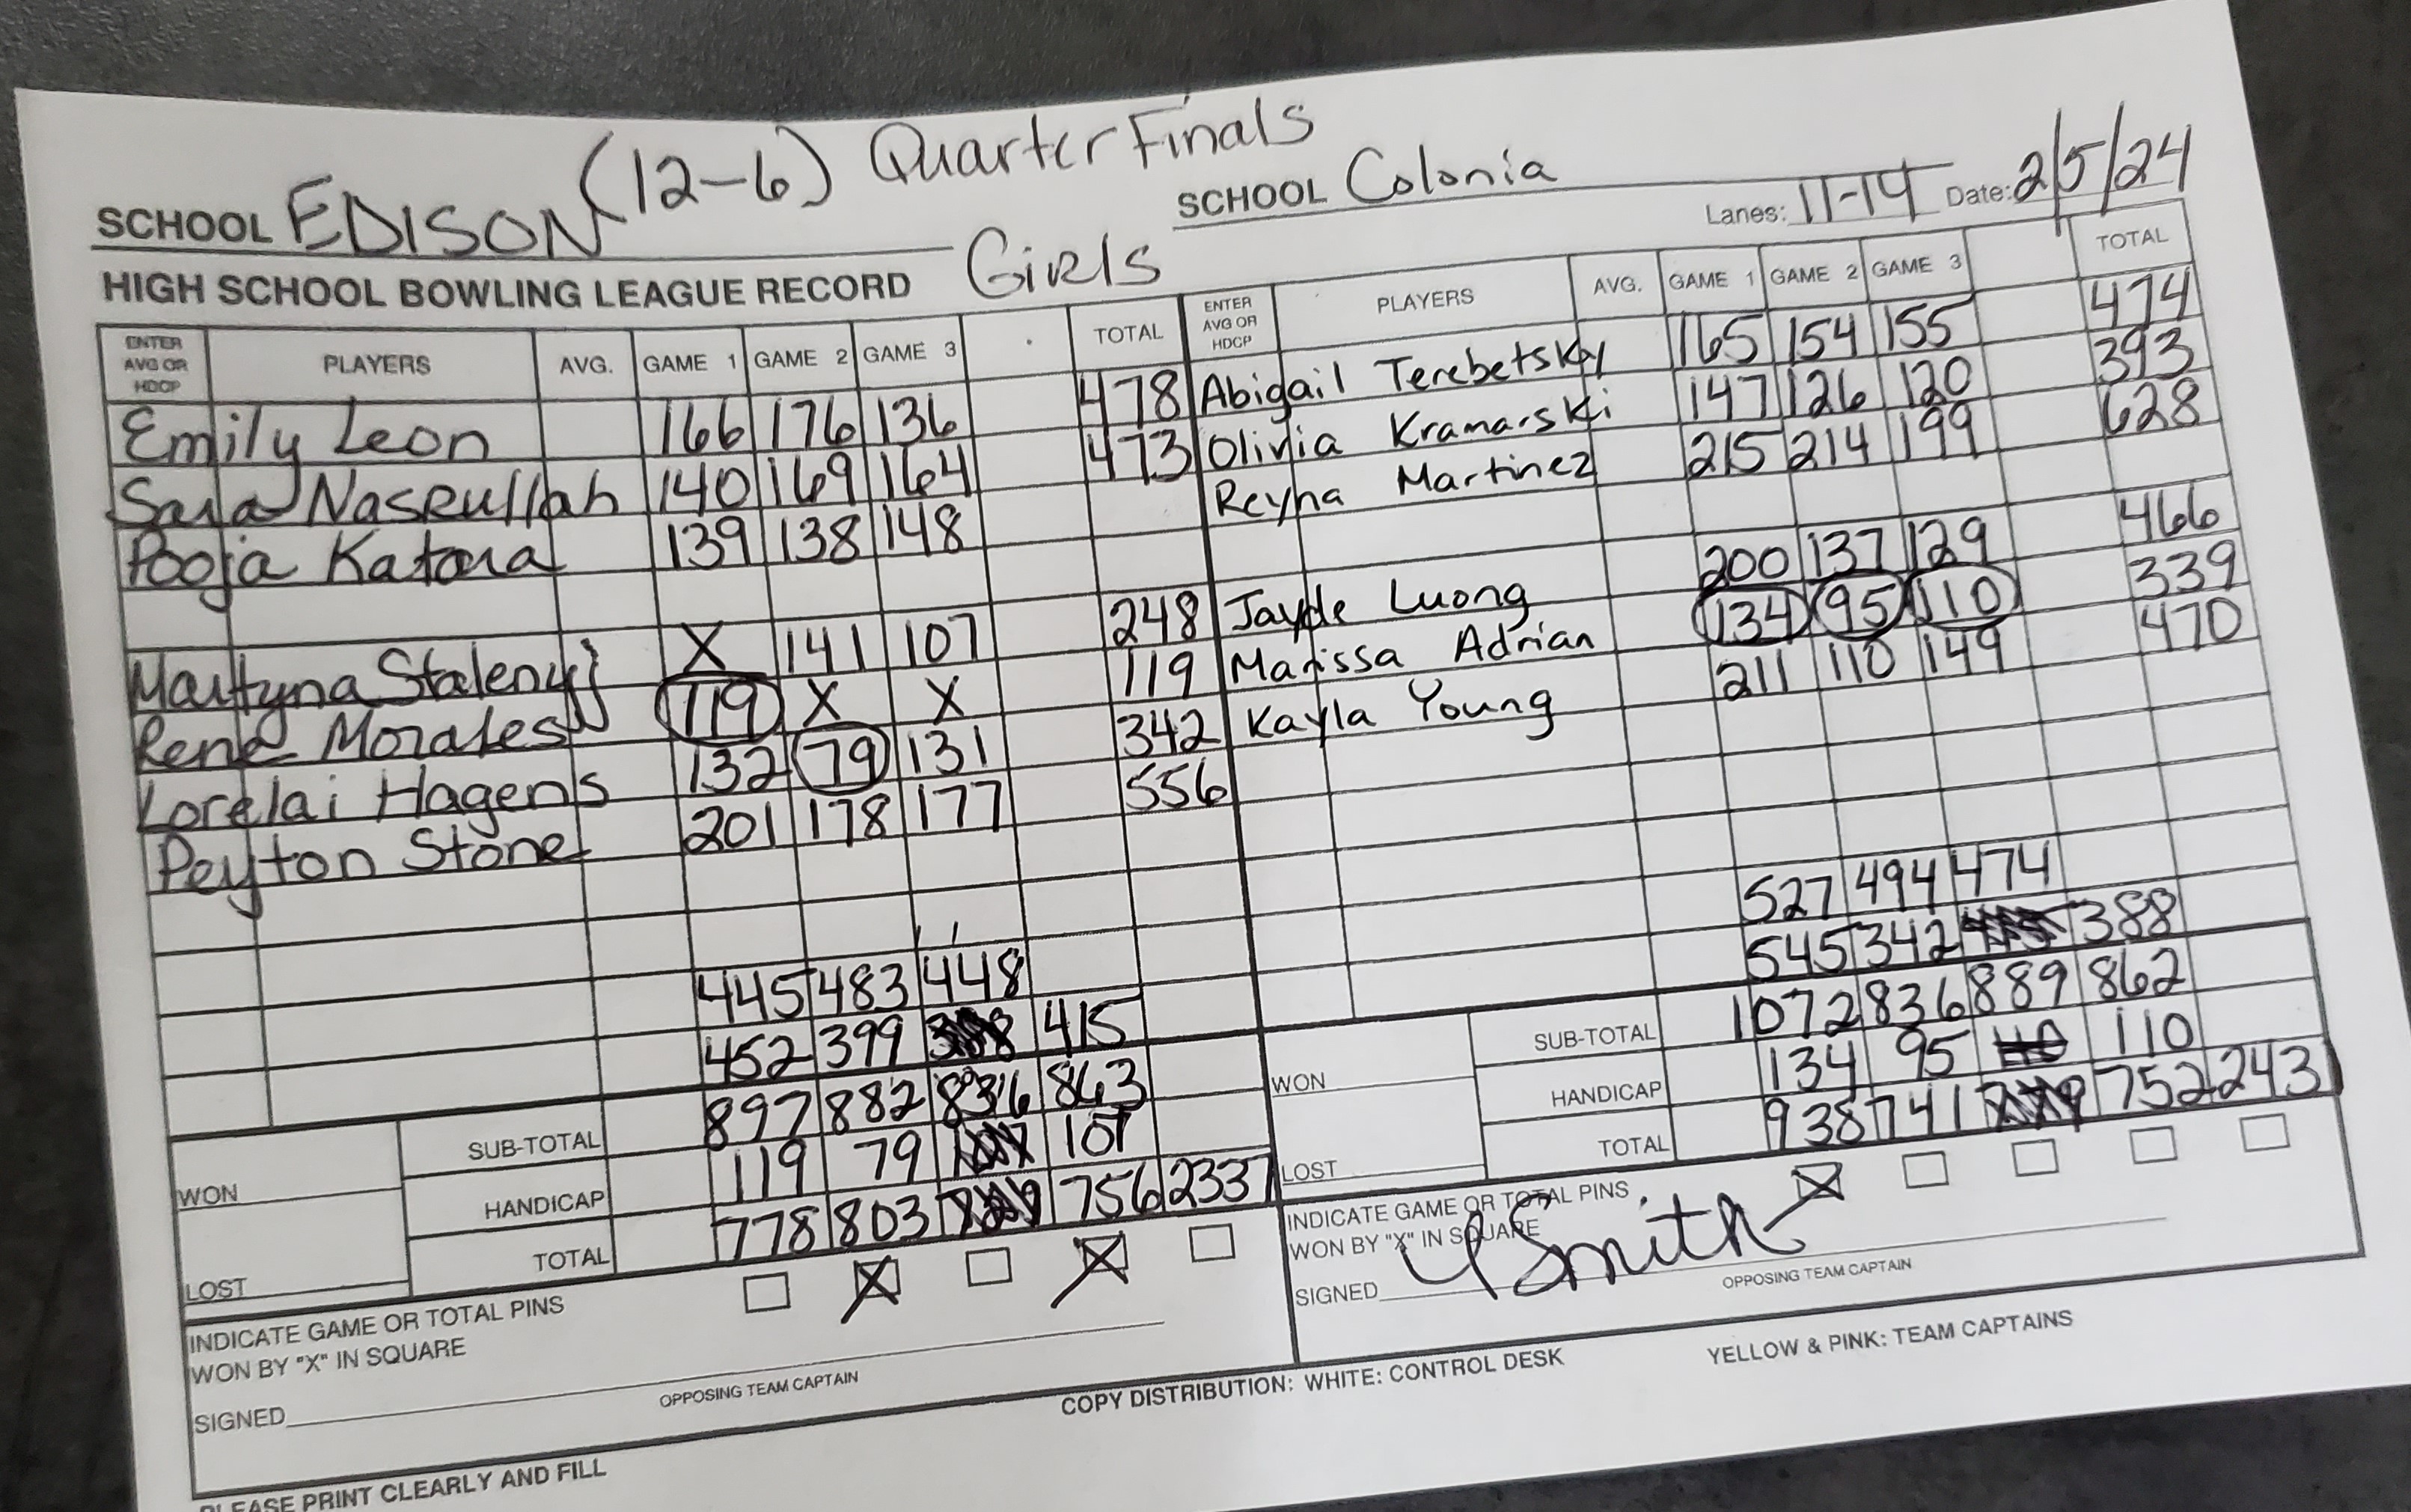 (12-6) QuarterFinals
SCHOOL EDISON
SCHOOL Colonia
Lanes: 11-14 Date: 2/5/24
HIGH SCHOOL BOWLING LEAGUE RECORD
Girls
ENTER AVG OR HDCP PLAYERS AVG. GAME 1 GAME 2 GAME 3 TOTAL
Emily Leon 166 176 136 478
Sara Nasrullah 140 169 164 473
Pooja Kataria 139 138 148
Martyna Stalenyj X 141 107 248
Rene Morales 119 X X 119
Lorelai Hagens 132 79 131 342
Peyton Stone 201 178 177 556
445 483 448
452 399 415
SUB-TOTAL 897 882 836 863
WON
HANDICAP 119 79 107
TOTAL 778 803 756 2337
LOST
INDICATE GAME OR TOTAL PINS
WON BY "X" IN SQUARE
SIGNED
OPPOSING TEAM CAPTAIN
ENTER AVG OR HDCP PLAYERS AVG. GAME 1 GAME 2 GAME 3 TOTAL
Abigail Terebetsky 165 154 155 474
Olivia Kramarski 147 126 120 393
Reyna Martinez 215 214 199 628
Jayde Luong 200 137 129 466
Marissa Adrian 134 95 110 339
Kayla Young 211 110 149 470
527 494 474
545 342 388
SUB-TOTAL 1072 836 889 862
WON
HANDICAP 134 95 110
TOTAL 938 741 752 2431
LOST
INDICATE GAME OR TOTAL PINS
WON BY "X" IN SQUARE
SIGNED Y Smith
OPPOSING TEAM CAPTAIN
COPY DISTRIBUTION: WHITE: CONTROL DESK YELLOW & PINK: TEAM CAPTAINS
PLEASE PRINT CLEARLY AND FILL